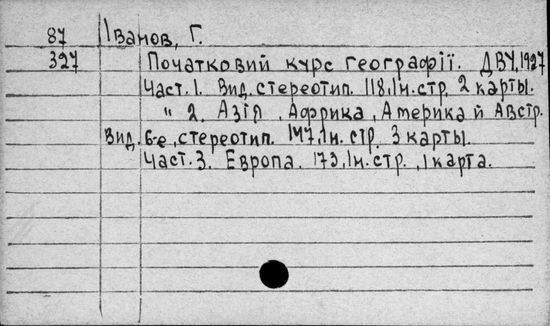 87 Іванов, Г.
327 Початковий курс географії. ДВУ, 1927
Част. 1. Вид. стереотип. 118,1н. стр. 2 карты.
" 2. Азія, Африка, Америка й Австр.
Вид. 6-е, стереотип. 147,1н. стр. 3 карты.
Част. 3. Европа. 173,1н. стр., 1 карта.